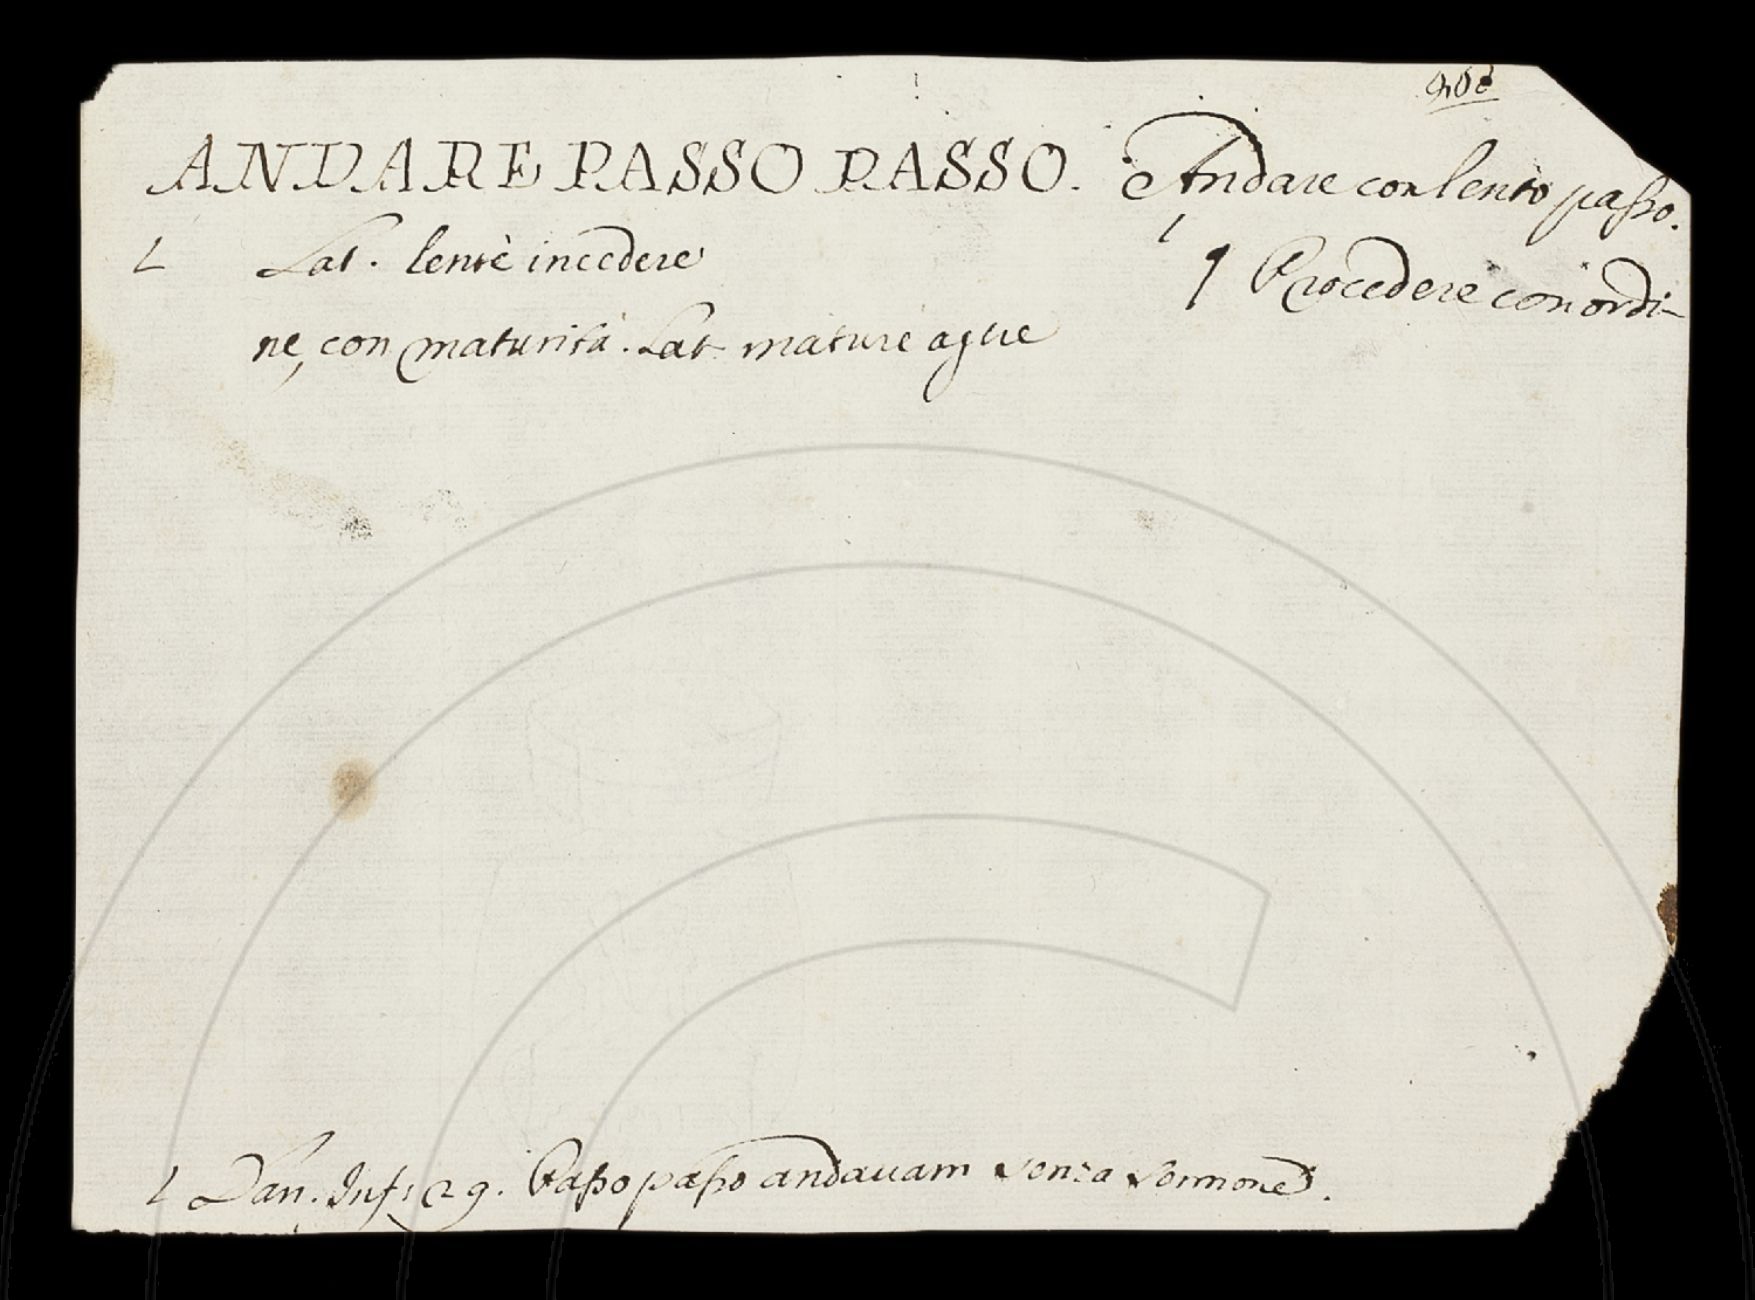 408
ANDARE PASSO PASSO. Andare con lento passo.
L Lat. lentè incedere ¶ Procedere con ordi-
ne, con maturità. Lat maturè agere
L Dan. Inf. 29. Passo passo andauam senza sermone.